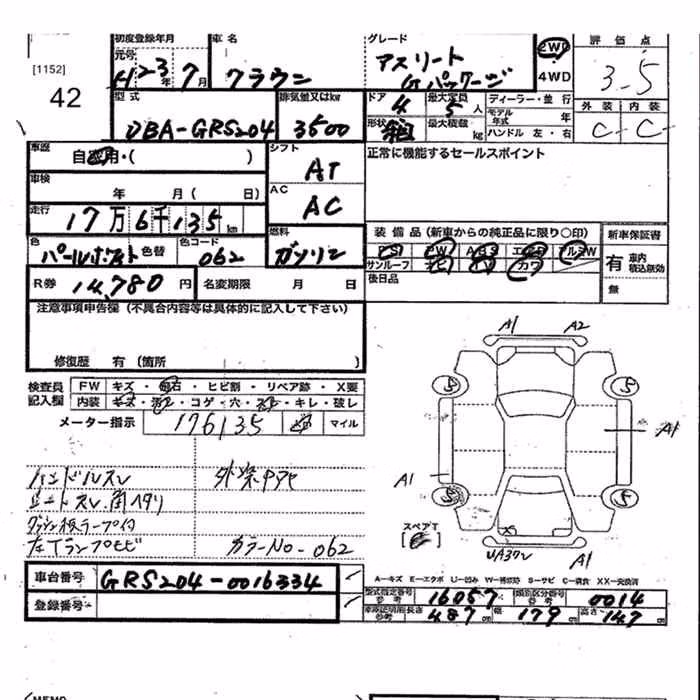 [1152]
42
初度登録年月
元号
H 23年 7月
車名
クラウン
グレード
アスリート
Gパッケージ
2WD
4WD
評価点
3.5
外装 内装
C - C
型式
DBA-GRS204
排気量又はkw
3500
ドア
4
最大定員
5人
形状
箱
最大積載
kg
ディーラー・並行
モデル年式
年
ハンドル 左・右
車歴
自家用・( )
シフト
AT
正常に機能するセールスポイント
車検
年 月 ( 日)
AC
AC
走行
17万6千135km
燃料
ガソリン
装備品(新車からの純正品に限り○印)
新車保証書
色
パールホワイト
色替
色コード
062
PS PW ABS エアB アルミW
サンルーフ ナビ TV カワ
後日品
有 車内積込有効
無
R券
14,780円
名変期限 月 日
注意事項申告欄(不具合内容等は具体的に記入して下さい)
修復歴 有(箇所 )
A1 A2
検査員記入欄
FW キズ・飛石・ヒビ割・リペア跡・X要
内装 キズ・汚レ・コゲ・穴・スレ・キレ・破レ
メーター指示
176135
km
マイル
5 5
A1
A1
5 5
ハンドルスレ
外装中アセ
シートスレ角ヘタリ
左Tランプヒビ
カラーNo-062
スペアT
UA37レ A1
車台番号
GRS204-0016334
登録番号
A-キズ E-エクボ U-凹み W-補修跡 S-サビ C-腐食 XX-交換済
型式指定番号参考
16057
類別区分番号参考
0014
車庫証明用参考
長さ 487cm
幅 179cm
高さ 147cm
MEMO